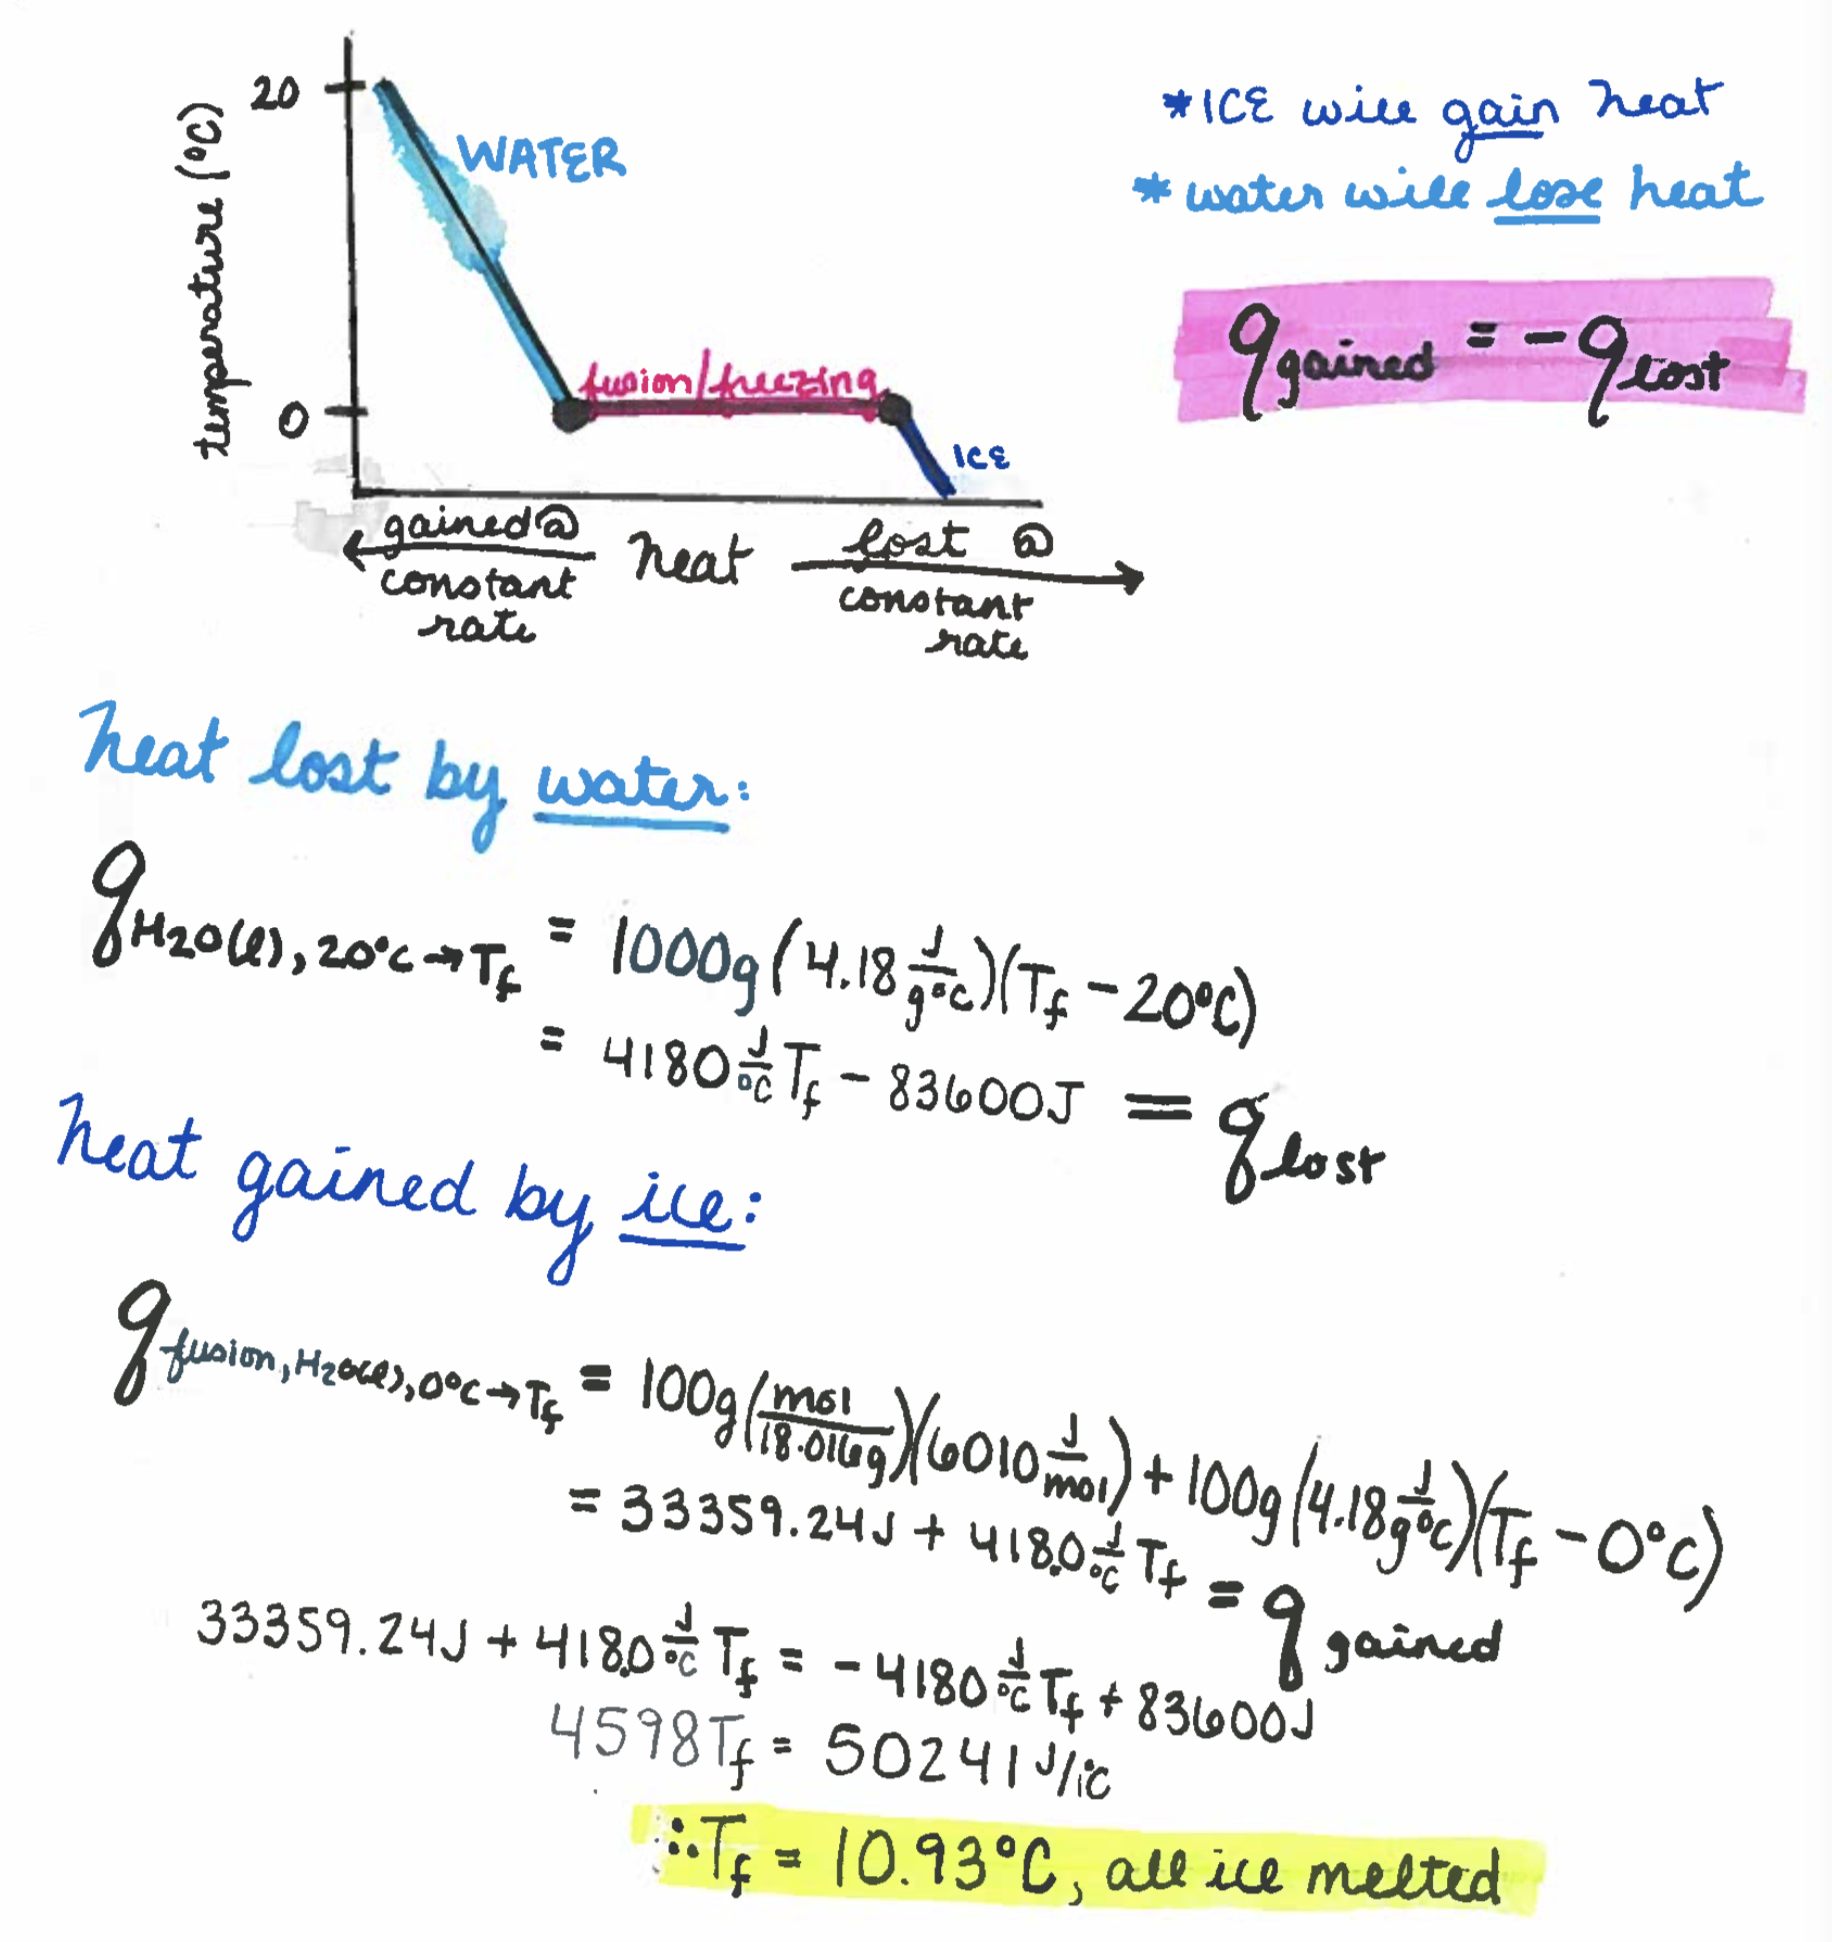 20
WATER
temperature (°C)
0
fusion/freezing
ICE
gained @
constant
rate
heat
lost @
constant
rate
*ICE will gain heat
*water will lose heat
q gained = -q lost
heat lost by water:
q H2O(l), 20°C→Tf = 1000g(4.18 J/g°C)(Tf - 20°C)
= 4180 J/°C Tf - 83600J = q lost
heat gained by ice:
q fusion, H2O(l), 0°C→Tf = 100g(mol/18.016g)(6010 J/mol) + 100g(4.18 J/g°C)(Tf - 0°C)
= 33359.24J + 418.0 J/°C Tf = q gained
33359.24J + 418.0 J/°C Tf = -4180 J/°C Tf + 83600J
4598Tf = 50241 J/°C
∴Tf = 10.93°C, all ice melted